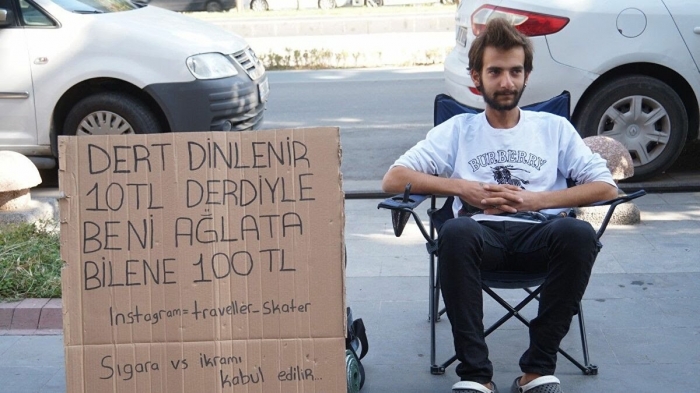 DERT DİNLENİR
10TL DERDİYLE
BENİ AĞLATA
BİLENE 100TL
Instagram=traveller_skater
Sigara vs ikramı
kabul edilir...
BURBERRY